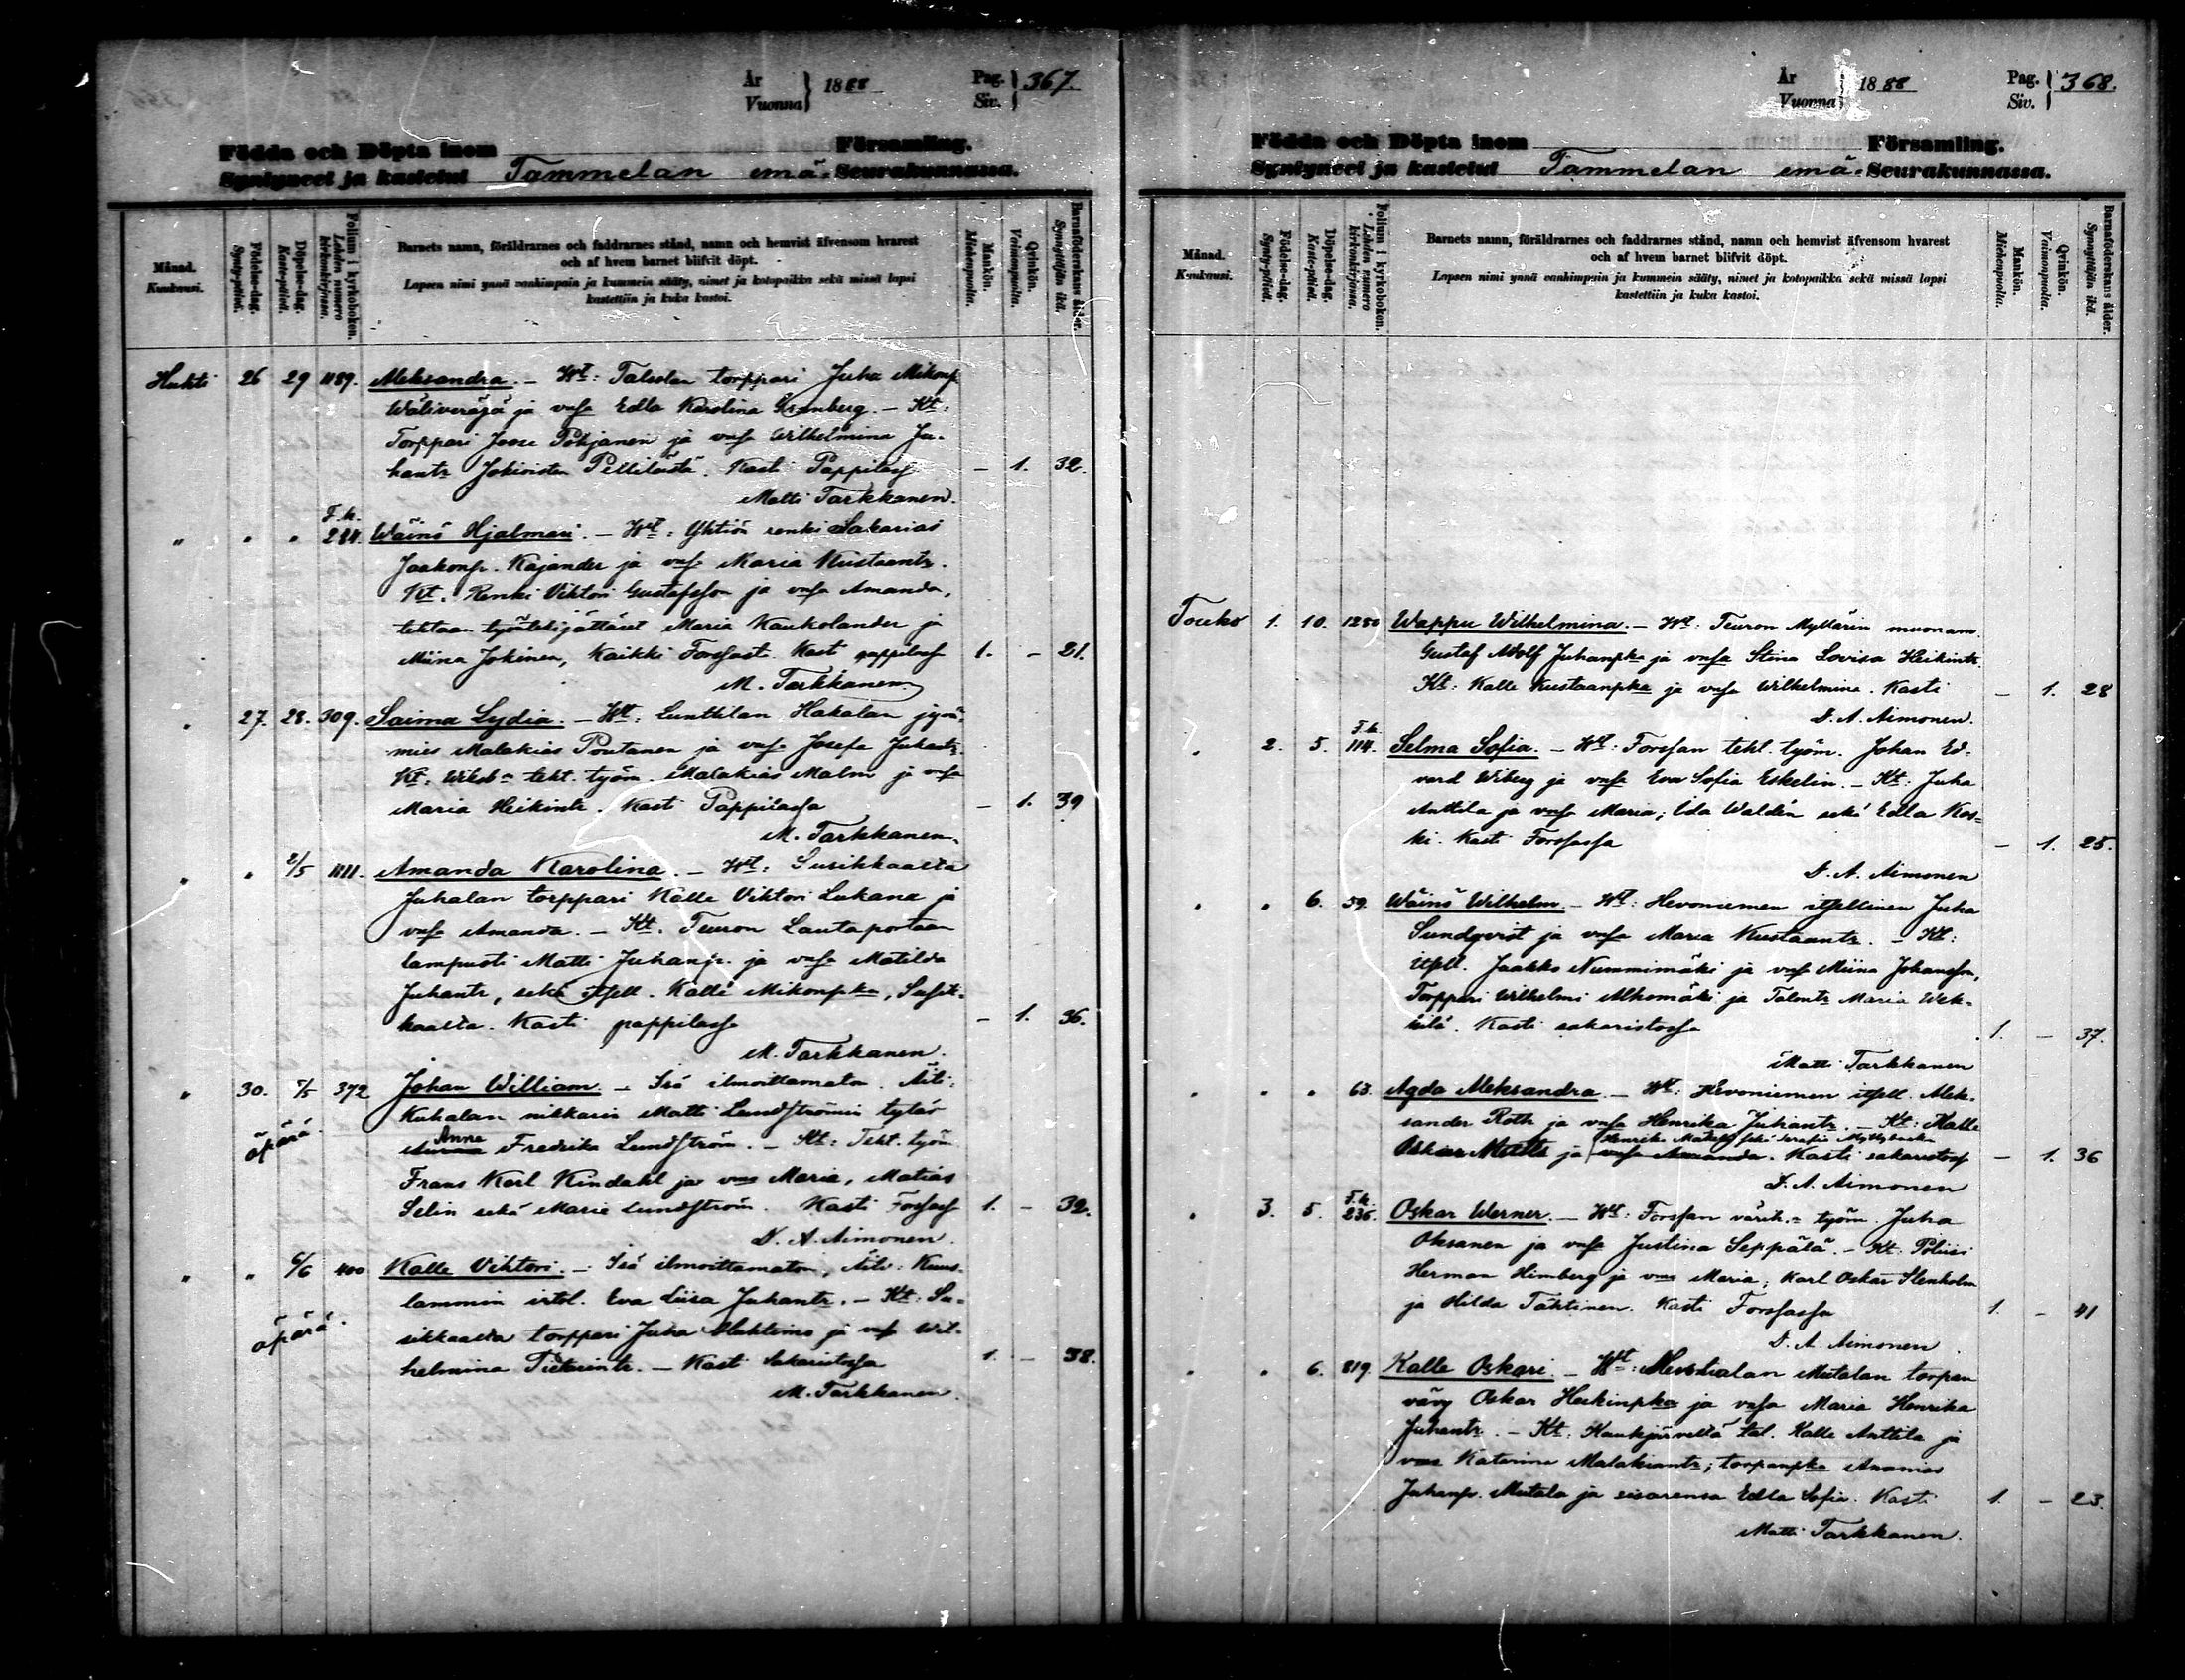 År
Vuonna } 1888
Pag.
Siv. } 367.
Födda och Döpta inom Församling.
Syntyneet ja kastetut Tammelan emä- Seurakunnassa.
Månad.
Kuukausi.
Födelse-dag.
Synty-päivä.
Döpelse-dag.
Kaste-päivä.
Folium i kyrkoboken.
Lehden numero kirkonkirjassa.
Barnets namn, föräldrarnes och faddrarnes stånd, namn och hemvist äfvensom hvarest
och af hvem barnet blifvit döpt.
Lapsen nimi ynnä vanhimpain ja kummein sääty, nimet ja kotopaikka sekä missä lapsi
kastettiin ja kuka kastoi.
Mankön.
Miehenpuolta.
Qvinkön.
Vaimonpuolta.
Barnaföderskans ålder.
Synnyttäjän ikä.
Huhti 26 29 1189. Aleksandra. – Wt: Talsolan torppari Juha Mikonp
Wäliveräjä ja vmsa Edla Karolina Granberg. – Kt:
Torppari Joose Pohjanen ja vmsa Wilhelmina Ju-
hantr Jokioisten Pellilästä. Kasti Pappilass – 1. 32.
Matti Tarkkanen.
" " " F.k. 284. Wäinö Hjalmari. – Wt: Yhtiön renki Sakarias
Jaakonp. Kajander ja vmsa Maria Kustaantr.
Kt. Renki Viktori Gustafsson ja vmsa Amanda,
tehtaan työntekijättäret Maria Kaukolander ja
Miina Jokinen, Kaikki Forssasta. Kast pappilass 1. – 21.
M. Tarkkanen.
" 27. 28. 309. Saima Lydia. – Wt: Lunttilan Hakalan jyvä-
mies Malakias Poutanen ja vmsa Josefa Juhantr.
Kt: teht. työm. Malakias Malm ja vmsa
Maria Heikintr. Kasti Pappilassa – 1. 39
M. Tarkkanen.
" " 2/5 1111. Amanda Karolina. – Wt: Susikkaalta
Juhalan torppari Kalle Viktori Lukana ja
vmsa Amanda. – Kt. Teuron Lautaportaan
lampuoti Matti Juhanp. ja vmsa Matilda
Juhantr, sekä itsell. Kalle Mikonpka, Susik-
kaalta. Kasti pappilassa – 1. 36.
M. Tarkkanen.
" 30. 5/5 372 Johan William. – Isä ilmoittamaton. Äiti:
Kuhalan nikkarin Matti Lundströmin tytär
äpärä. Anna Fredrika Lundström. – Kt: Teht. työm
Frans Karl Kindahl ja vmo Maria, Matias
Selin sekä Maria Lundström. Kasti Forssass 1. – 32.
D. A. Aimonen.
" " 6/6 400 Kalle Viktori. – Isä ilmoittamaton, Äiti: Kuus-
lammin irtol. Eva Liisa Juhantr. – Kt: Su-
äpärä. sikkaalta torppari Juha Mahtimo ja vmsa Wil-
helmina Pietarintr. – Kasti Sakaristossa 1. – 38.
M. Tarkkanen.
År
Vuonna } 1888
Pag.
Siv. } 368.
Födda och Döpta inom Församling.
Syntyneet ja kastetut Tammelan emä- Seurakunnassa.
Månad.
Kuukausi.
Födelse-dag.
Synty-päivä.
Döpelse-dag.
Kaste-päivä.
Folium i kyrkoboken.
Lehden numero kirkonkirjassa.
Barnets namn, föräldrarnes och faddrarnes stånd, namn och hemvist äfvensom hvarest
och af hvem barnet blifvit döpt.
Lapsen nimi ynnä vanhimpain ja kummein sääty, nimet ja kotopaikka sekä missä lapsi
kastettiin ja kuka kastoi.
Mankön.
Miehenpuolta.
Qvinkön.
Vaimonpuolta.
Barnaföderskans ålder.
Synnyttäjän ikä.
Touko 1. 10. 1250 Wappu Wilhelmina. – Wt: Teuron Myllärin muonam.
Gustaf Adolf Juhanpka ja vmsa Stina Lovisa Heikintr.
Kt: Kalle Kustaanpka ja vmsa Wilhelmina. Kasti – 1. 28
D. A. Aimonen.
" 2. 5. F.k. 114. Selma Sofia. – Wt: Forssan teht. työm. Johan Ed-
vard Wiberg ja vmsa Eva Sofia Eskelin. – Kt: Juha
Anttila ja vmsa Maria; Ida Waldén sekä Edla Kos-
ki. Kasti Forssassa – 1. 25.
D. A. Aimonen
" " 6. 59. Wäinö Wilhelm. – Wt: Hevoniemen itsellinen Juha
Sundqvist ja vmsa Maria Kustaantr. – Kt:
itsell. Jaakko Nummimäki ja vmsa Miina Johansson,
Torppari Wilhelmi Alhomäki ja Talontr Maria Wek-
kilä. Kasti sakaristossa 1. – 37.
Matti Tarkkanen
" " " 63. Agda Aleksandra. – Wt: Hevoniemen itsell. Alek-
sander Roth ja vmsa Henrika Juhantr. – Kt: Kalle
Henrika sekä Serafia
Oskar ja vmsa Amanda. Kasti sakaristoss – 1. 36
D. A. Aimonen
" 3. 5. F.k. 235. Oskar Werner. – Wt: Forssan värik.- työm. Juha
Oksanen ja vmsa Justina Seppälä. – Kt. Poliisi
Herman Himberg ja vmo Maria; Karl Oskar Stenholm
ja Hilda Tähtinen. Kasti Forssassa 1. – 41
D. A. Aimonen.
" " 6. 819. Kalle Oskari. – Wt: Mustialan Mutalan torpan
väry Oskar Heikinpka ja vmsa Maria Henrika
Juhantr. – Kt: Kaukjärveltä tal. Kalle Anttila ja
vmo Katarina Malakiantr; torpanpka Ananias
Juhanp. Mutala ja sisarensa Edla Sofia. Kasti 1. – 23.
Matti Tarkkanen.